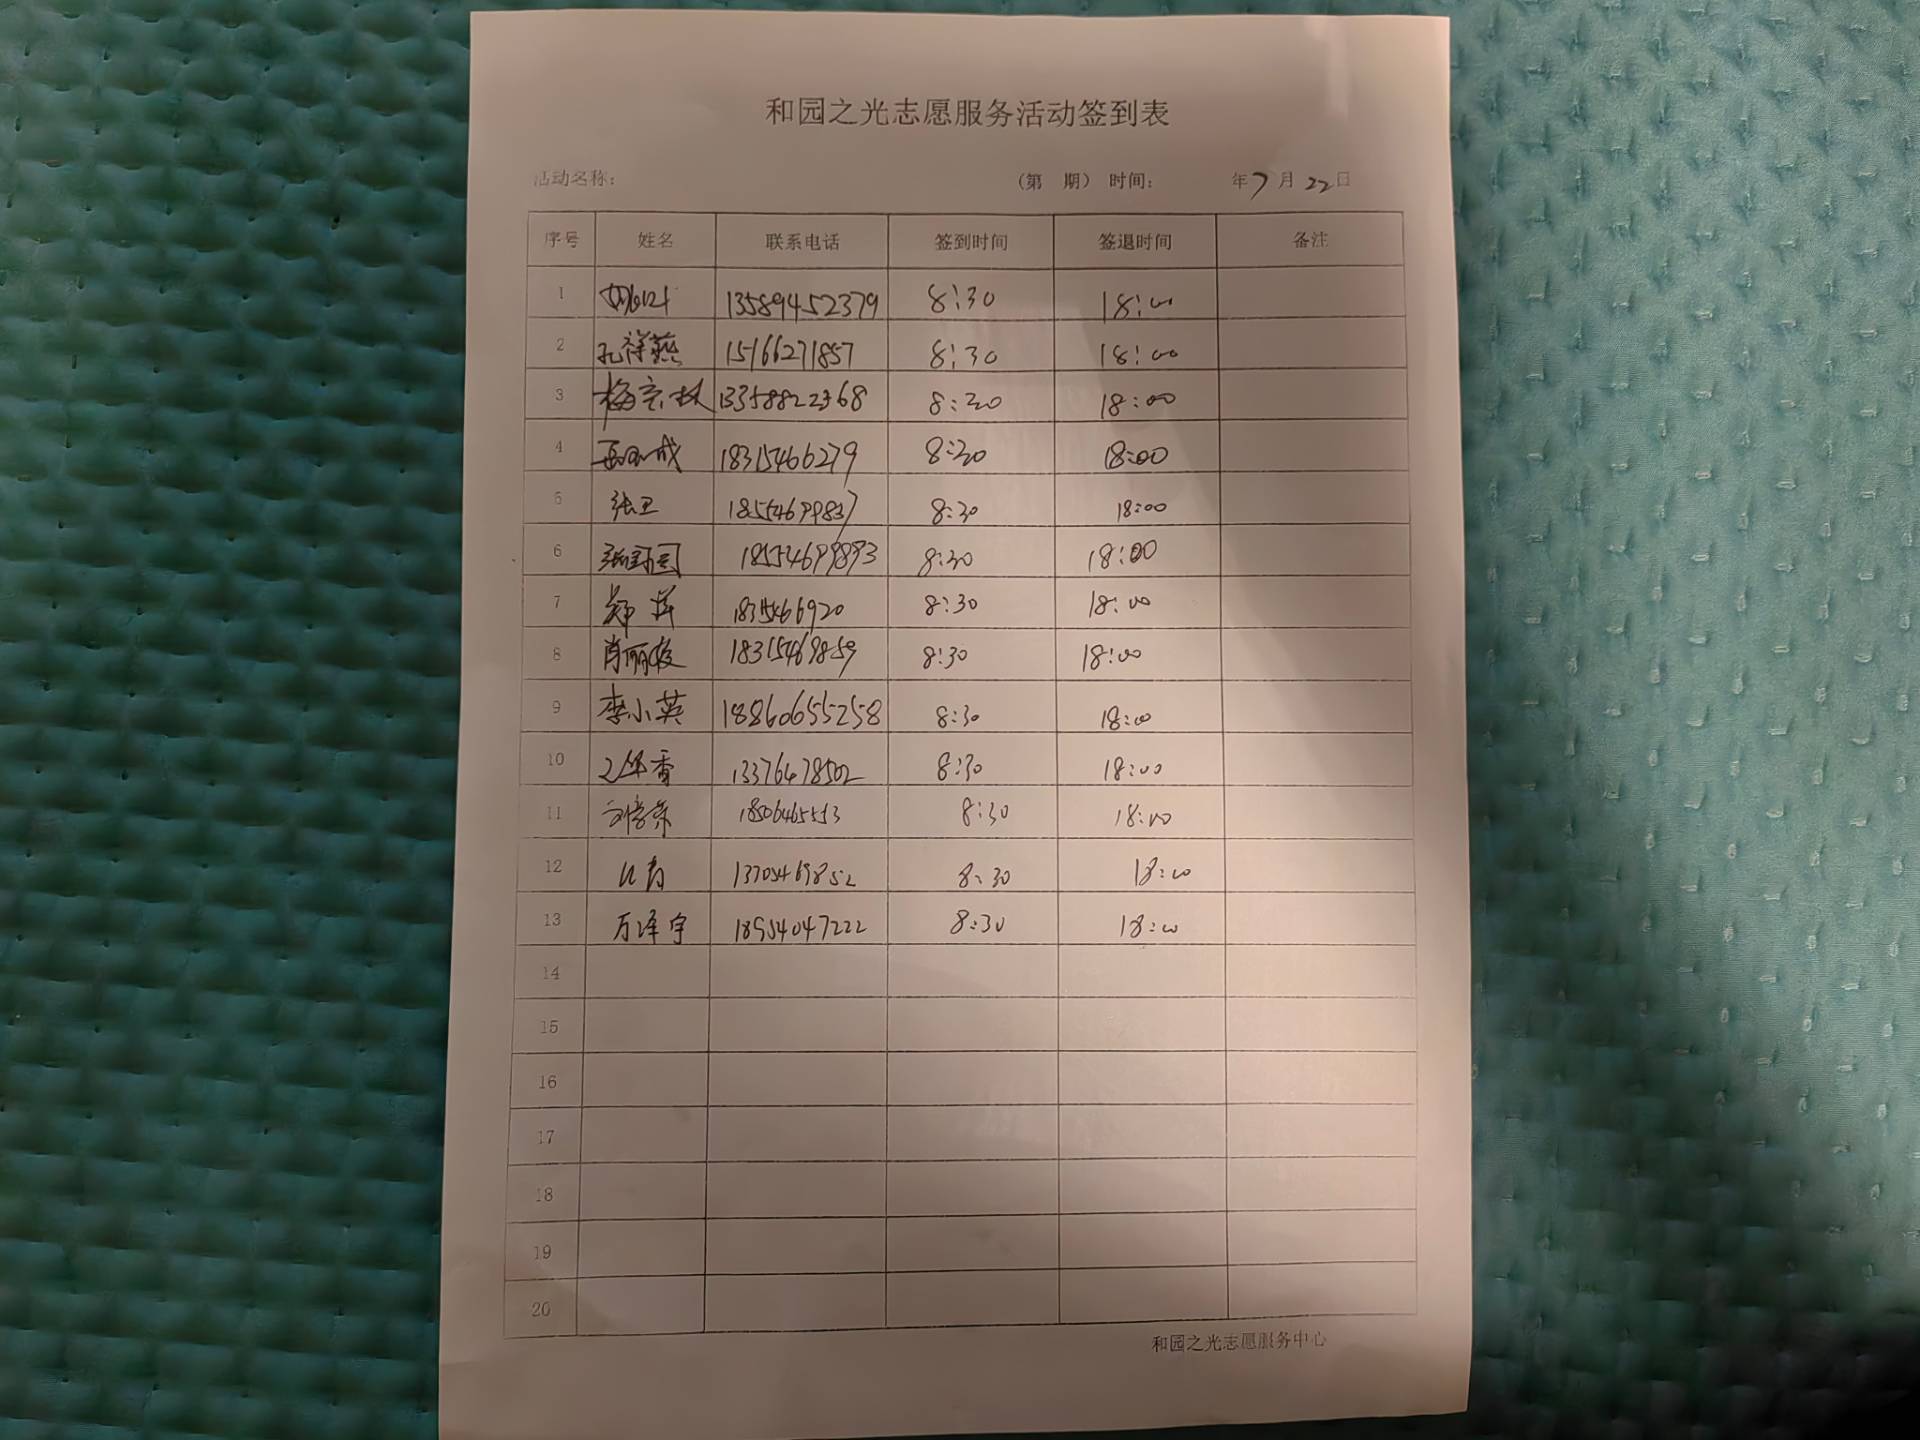 和园之光志愿服务活动签到表
活动名称： （第 期） 时间： 年7月22日
序号 姓名 联系电话 签到时间 签退时间 备注
1 13589452379 8:30 18:00
2 孔祥燕 15166271857 8:30 18:00
3 8:30 18:00
4 18315466279 8:30 18:00
5 张卫 18554699837 8:30 18:00
6 18554699893 8:30 18:00
7 8:30 18:00
8 18315469859 8:30 18:00
9 李小英 18860655258 8:30 18:00
10 13376478502 8:30 18:00
11 8:30 18:00
12 13705469852 8:30 18:00
13 万泽宇 18954047222 8:30 18:00
14
15
16
17
18
19
20
和园之光志愿服务中心